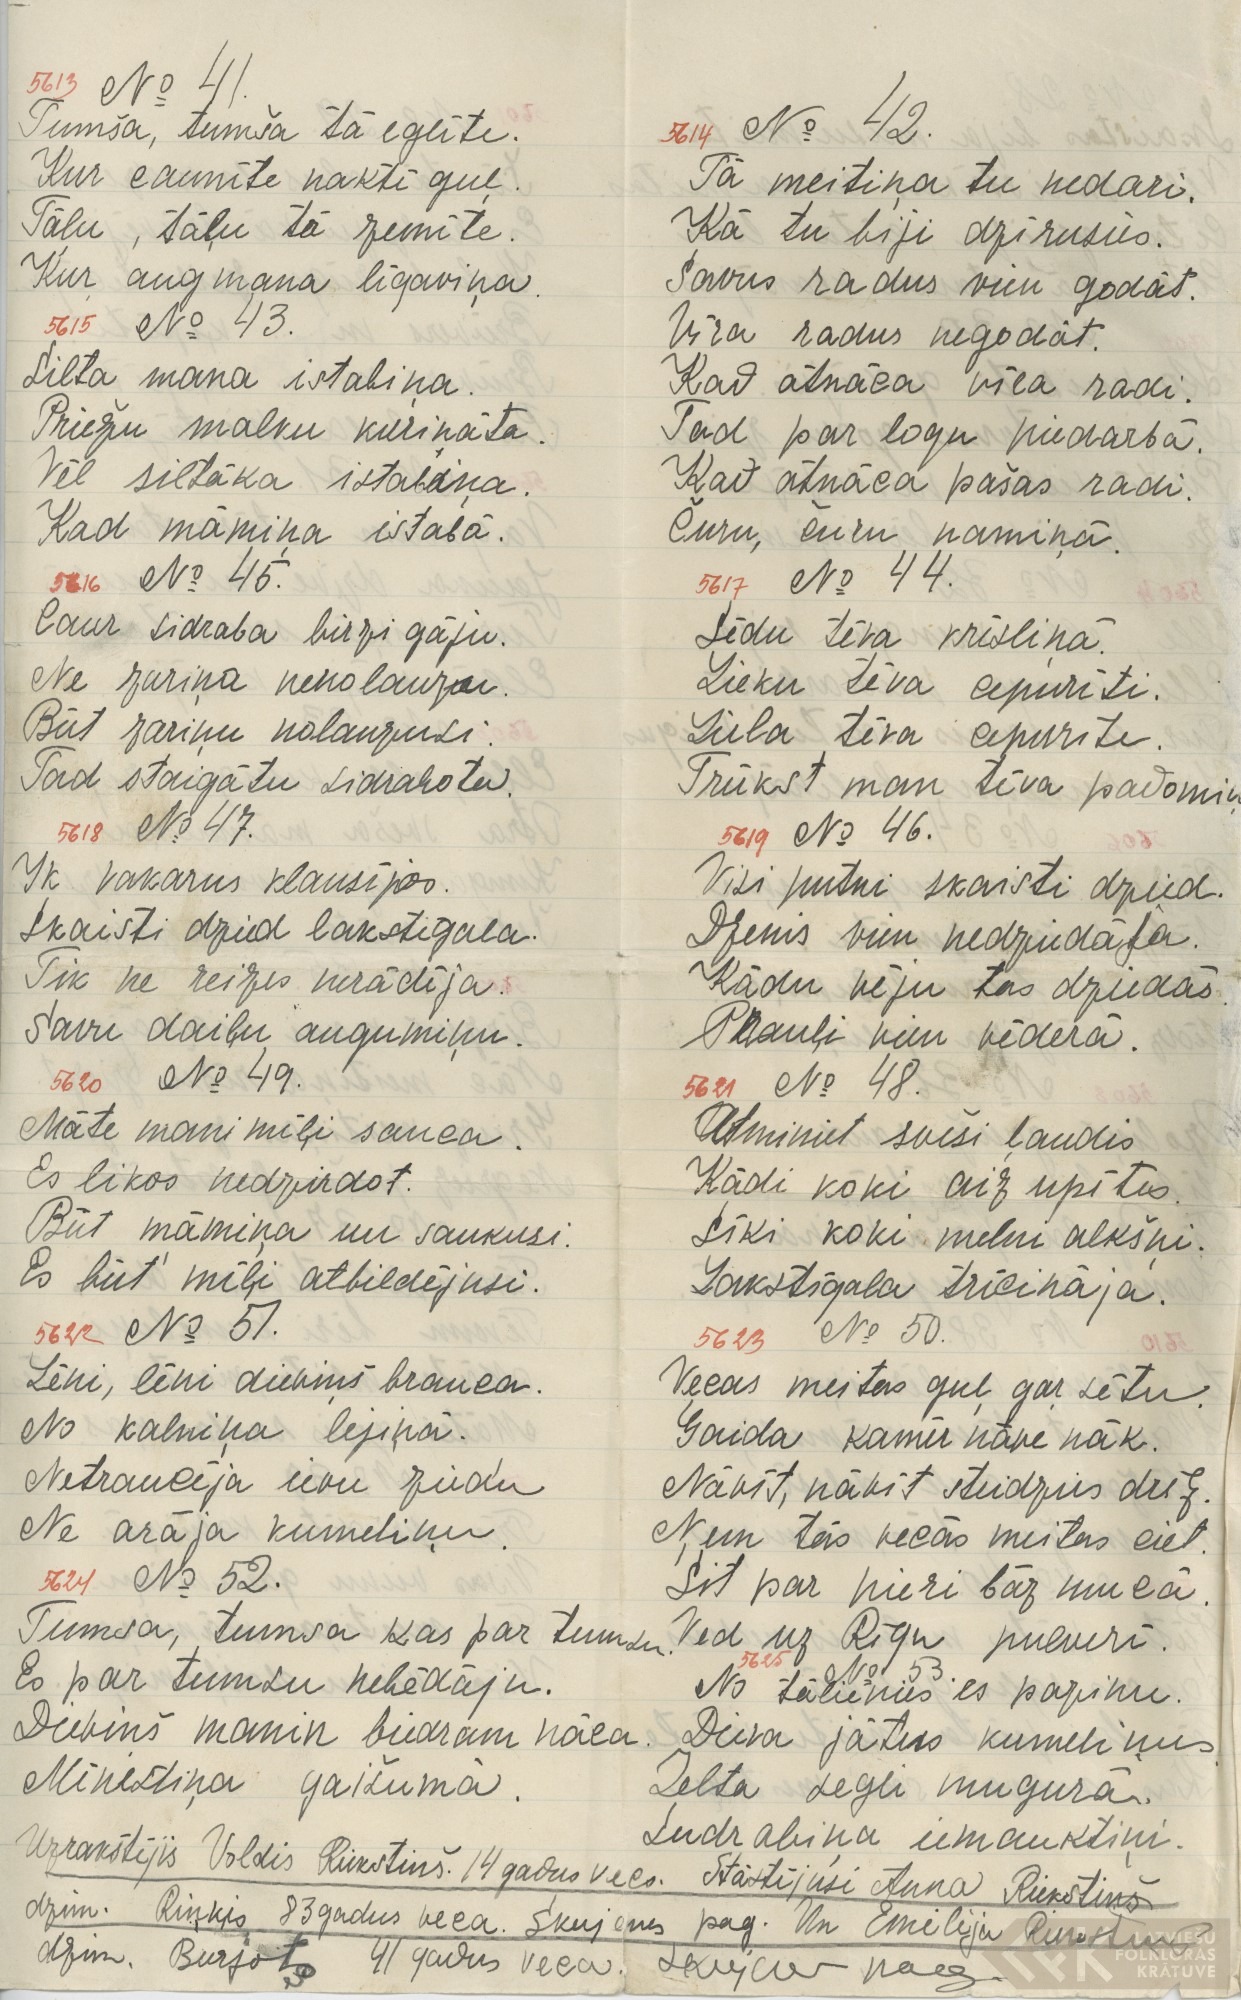 5613 No 41.
Tumša, tumša tā eglīte.
Kur caunīte nakti guļ.
Tālu, tāļu tā zemīte.
Kur aug mana līgaviņa.
5615 No 43.
Silta mana istabiņa.
Priežu malku kurināta.
Vēl siltāka istabiņa.
Kad māmiņa istabā.
5616 No 45.
Caur sidraba birzi gāju.
Ne zariņa nenolauzu.
Būt zariņu nolauzusi.
Tad staigātu sidrabota.
5618 No 47.
Ik vakarus klausijos.
Skaisti dzied lakstīgala.
Tik ne reizes nerādīja.
Savu daiļu augumiņu.
5620 No 49.
Māte mani mīļi sauca.
Es likos nedzirdot.
Būt māmiņa nu saukusi.
Es būt' mīļi atbildējusi.
5622 No 51.
Lēni, lēni dieviņš brauca.
No kalniņa lejiņā.
Netraucēja ievu ziedu
Ne arāja kumeliņu.
5624 No 52.
Tumsa, tumsa kas par tumsu.
Es par tumsu nebēdāju.
Dieviņš manim biedram nāca.
Mēnestiņa gaišumā.
5614 No 42.
Tā meitiņa tu nedari.
Kā tu biji dzirusies.
Savus radus vien godāt.
Vīra radus negodāt.
Kad atnāca vīra radi.
Tad par logu piedarbā.
Kad atnāca pašas radi.
Čuru, čuru namiņā.
5617 No 44.
Sēdu tēva krēsliņā.
Lieku tēva cepurīti.
Liela tēva cepurīte.
Trūkst man tēva padomiņ
5619 No 46.
Visi putni skaisti dzied.
Dzenis vien nedziedāja.
Kādu vēju tas dziedās
Prauļi vien vēderā.
5621 No 48.
Atminiet sveši ļaudis
Kādi koki aiz upītes.
Sīki koki melni alkšņi.
Lakstīgala trīcināja.
5623 No 50.
Vecas meitas guļ gar sētu.
Gaida kamēr nāve nāk.
Nāvīt, nāvīt steidzies drīz.
Ņem tās vecās meitas ciet.
Sit par pieri bāz mucā.
Ved uz Rīgu pulverī.
5625 No 53.
No tālienes es pazinu.
Dieva jātus kumeliņus
Zelta segli mugurā.
Sudrabiņa iemauktiņi.
Uzrakstījis Voldis Riekstiņš. 14 gadus vecs. Stāstījusi Anna Riekstiņš
dzim. Riņķis 83 gadus veca. Skujenes pag. Un Emīlija Riekstiņš
dzim. 41 gadus veca. Skujenes pag.
LATVIEŠU
FOLKLORAS
KRĀTUVE